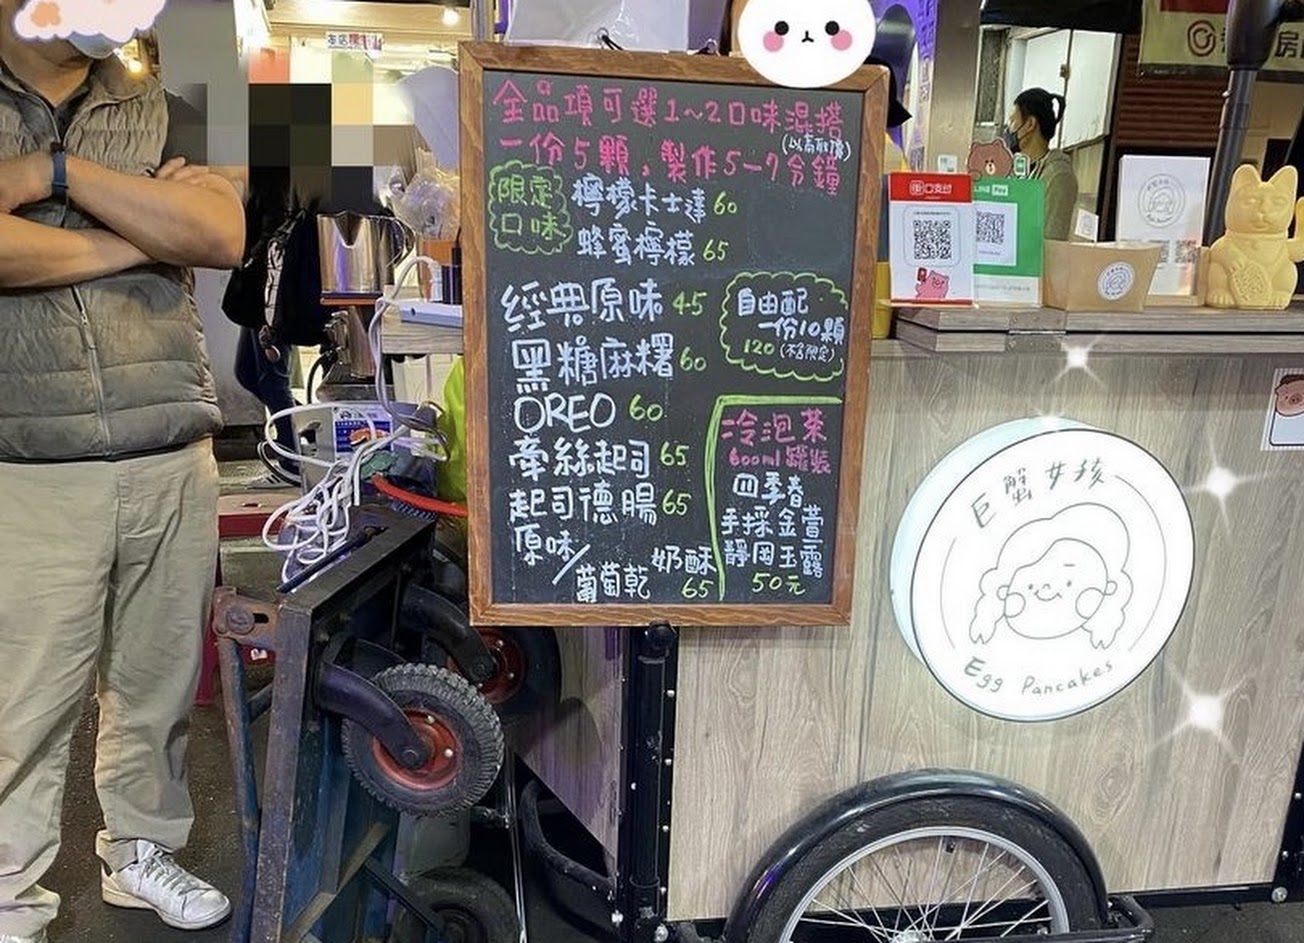 全品項可選1~2口味混搭
(以高取價)
一份5顆,製作5-7分鐘
限定
口味
檸檬卡士達 60
蜂蜜檸檬 65
經典原味 45
黑糖麻糬 60
OREO 60
牽絲起司 65
起司德腸 65
原味/葡萄乾 奶酥 65
自由配
一份10顆
120 (不含限定)
冷泡茶
600ml罐裝
四季春
手採金萱
靜岡玉露
50元
街口支付
LINE Pay
巨蟹女孩
Egg Pancakes
房